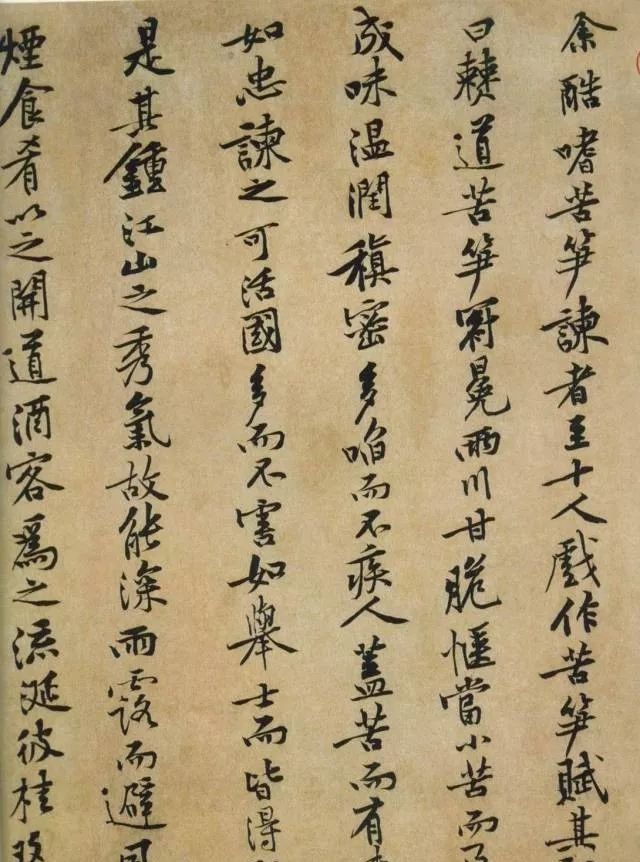 余酷嗜苦笋諫者至十人戲作苦笋賦其
曰僰道苦笋冠冕兩川甘脆愜當小苦而
成味温潤稹密多啗而不疾人蓋苦而有
如忠諫之可活國多而不害如舉士而皆得
是其鍾江山之秀氣故能深雨露而避
煙食肴以之開道酒客爲之流涎彼桂